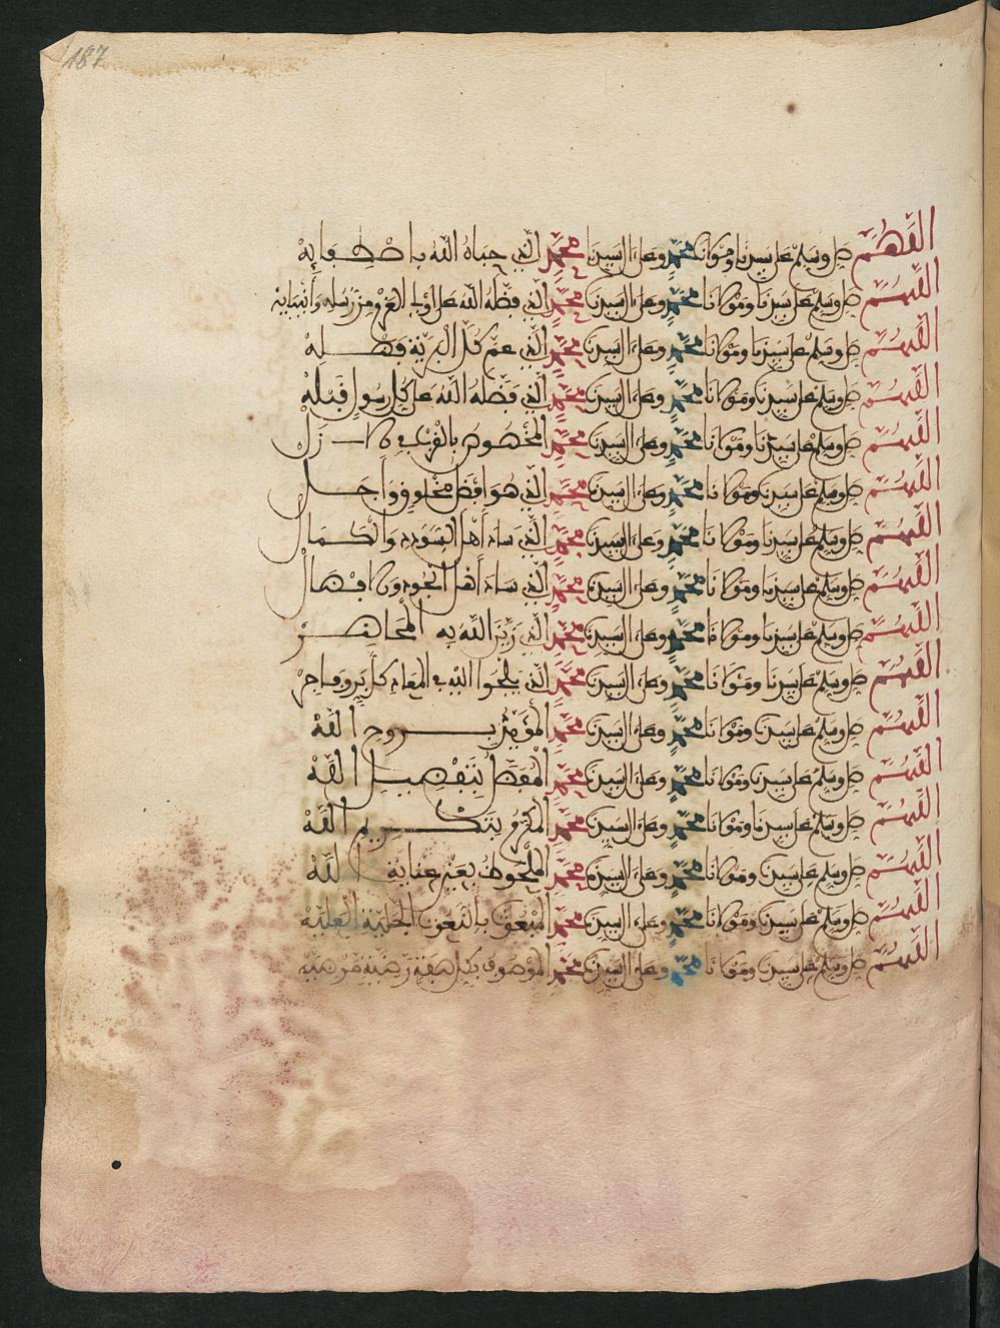 187
اللهم صل وسلم على سيدنا ومولانا محمد وعلى ال سيدنا محمد الذي حباه الله باصطفايه
اللهم صل وسلم على سيدنا ومولانا محمد وعلى ال سيدنا محمد الذي فضله الله على اولي العزم من رسله وانبيايه
اللهم صل وسلم على سيدنا ومولانا محمد وعلى ال سيدنا محمد الذي عم كل البرية فضله
اللهم صل وسلم على سيدنا ومولانا محمد وعلى ال سيدنا محمد الذي فضله الله على كل رسول قبله
اللهم صل وسلم على سيدنا ومولانا محمد وعلى ال سيدنا محمد المخصوص بالقرب في الازل
اللهم صل وسلم على سيدنا ومولانا محمد وعلى ال سيدنا محمد الذي هو افضل مخلوق واجل
اللهم صل وسلم على سيدنا ومولانا محمد وعلى ال سيدنا محمد الذي ساد أهل السودد والكمال
اللهم صل وسلم على سيدنا ومولانا محمد وعلى ال سيدنا محمد الذي ساد أهل الجود والافضال
اللهم صل وسلم على سيدنا ومولانا محمد وعلى ال سيدنا محمد الذي زين الله به المحاضر
اللهم صل وسلم على سيدنا ومولانا محمد وعلى ال سيدنا محمد الذي يلجوا اليه في المعاد كل بر وفاجر
اللهم صل وسلم على سيدنا ومولانا محمد وعلى ال سيدنا محمد المؤيد بروح الله
اللهم صل وسلم على سيدنا ومولانا محمد وعلى ال سيدنا محمد المفضل بتفضيل الله
اللهم صل وسلم على سيدنا ومولانا محمد وعلى ال سيدنا محمد المكرم بتكريم الله
اللهم صل وسلم على سيدنا ومولانا محمد وعلى ال سيدنا محمد الملحوظ بعين عناية الله
اللهم صل وسلم على سيدنا ومولانا محمد وعلى ال سيدنا محمد المنعوت بالنعوت الجلية العلية
اللهم صل وسلم على سيدنا ومولانا محمد وعلى ال سيدنا محمد الموصوف بكل صفة رضية مرضية